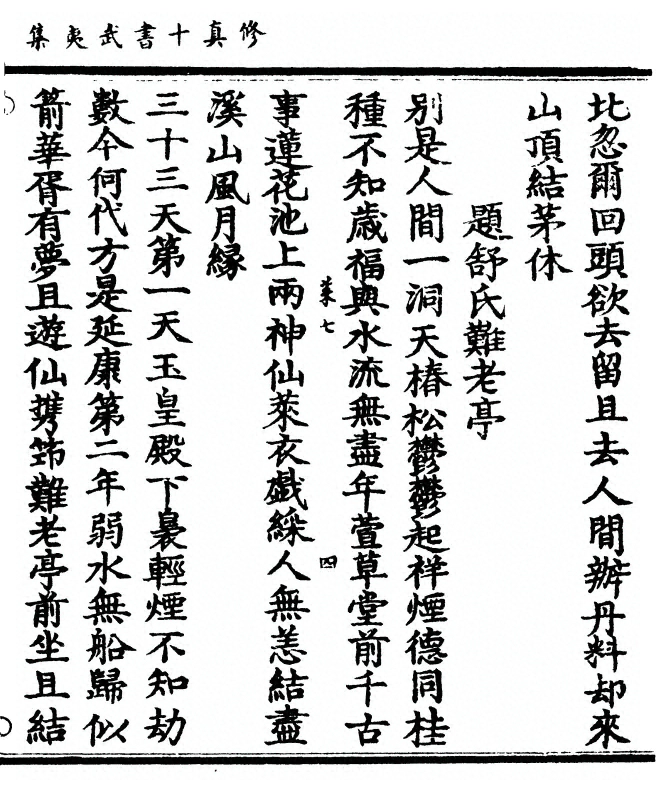 修真十書武夷集
比忽爾回頭欲去留且去人間辦丹料却來
山頂結茅休
題舒氏難老亭
別是人間一洞天椿松鬱鬱起祥煙德同桂
種不知歳福與水流無盡年萱草堂前千古
菜七
四
事蓮花池上兩神仙萊衣戲綵人無恙結盡
溪山風月緣
三十三天第一天玉皇殿下裊輕煙不知劫
數今何代方是延康第二年弱水無船歸似
箭華胥有夢且遊仙携筇難老亭前坐且結